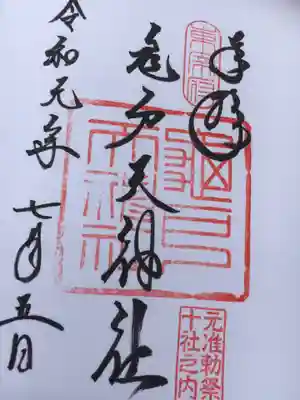 奉拝
亀戸天神社
令和元年
七月五日
東宰府
元准勅祭
十社之内